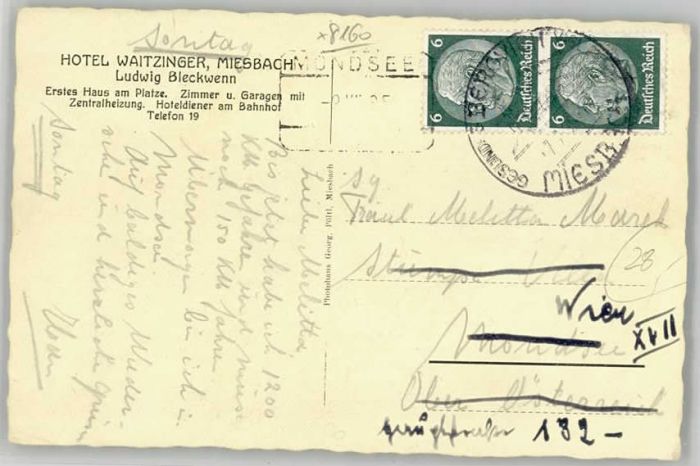 Sontag
x8160
HOTEL WAITZINGER, MIESBACH
Ludwig Bleckwenn
Erstes Haus am Platze. Zimmer u. Garagen mit
Zentralheizung. Hoteldiener am Bahnhof
Telefon 19
MONDSEE
6 Deutsches Reich
6 Deutsches Reich
MIESBACH
Sontag
Liebe Melitta
Bis jetzt habe ich 1200
KM gefahren und muss
noch 150 KM fahren.
Übermorgen bin ich in
Mondsee.
Auf baldiges Wieder-
sehen und herzliche
Photohaus Georg Püttl, Miesbach
Melitta Marek
28
Wien
XVII
Mondsee
Ober Österreich
132-